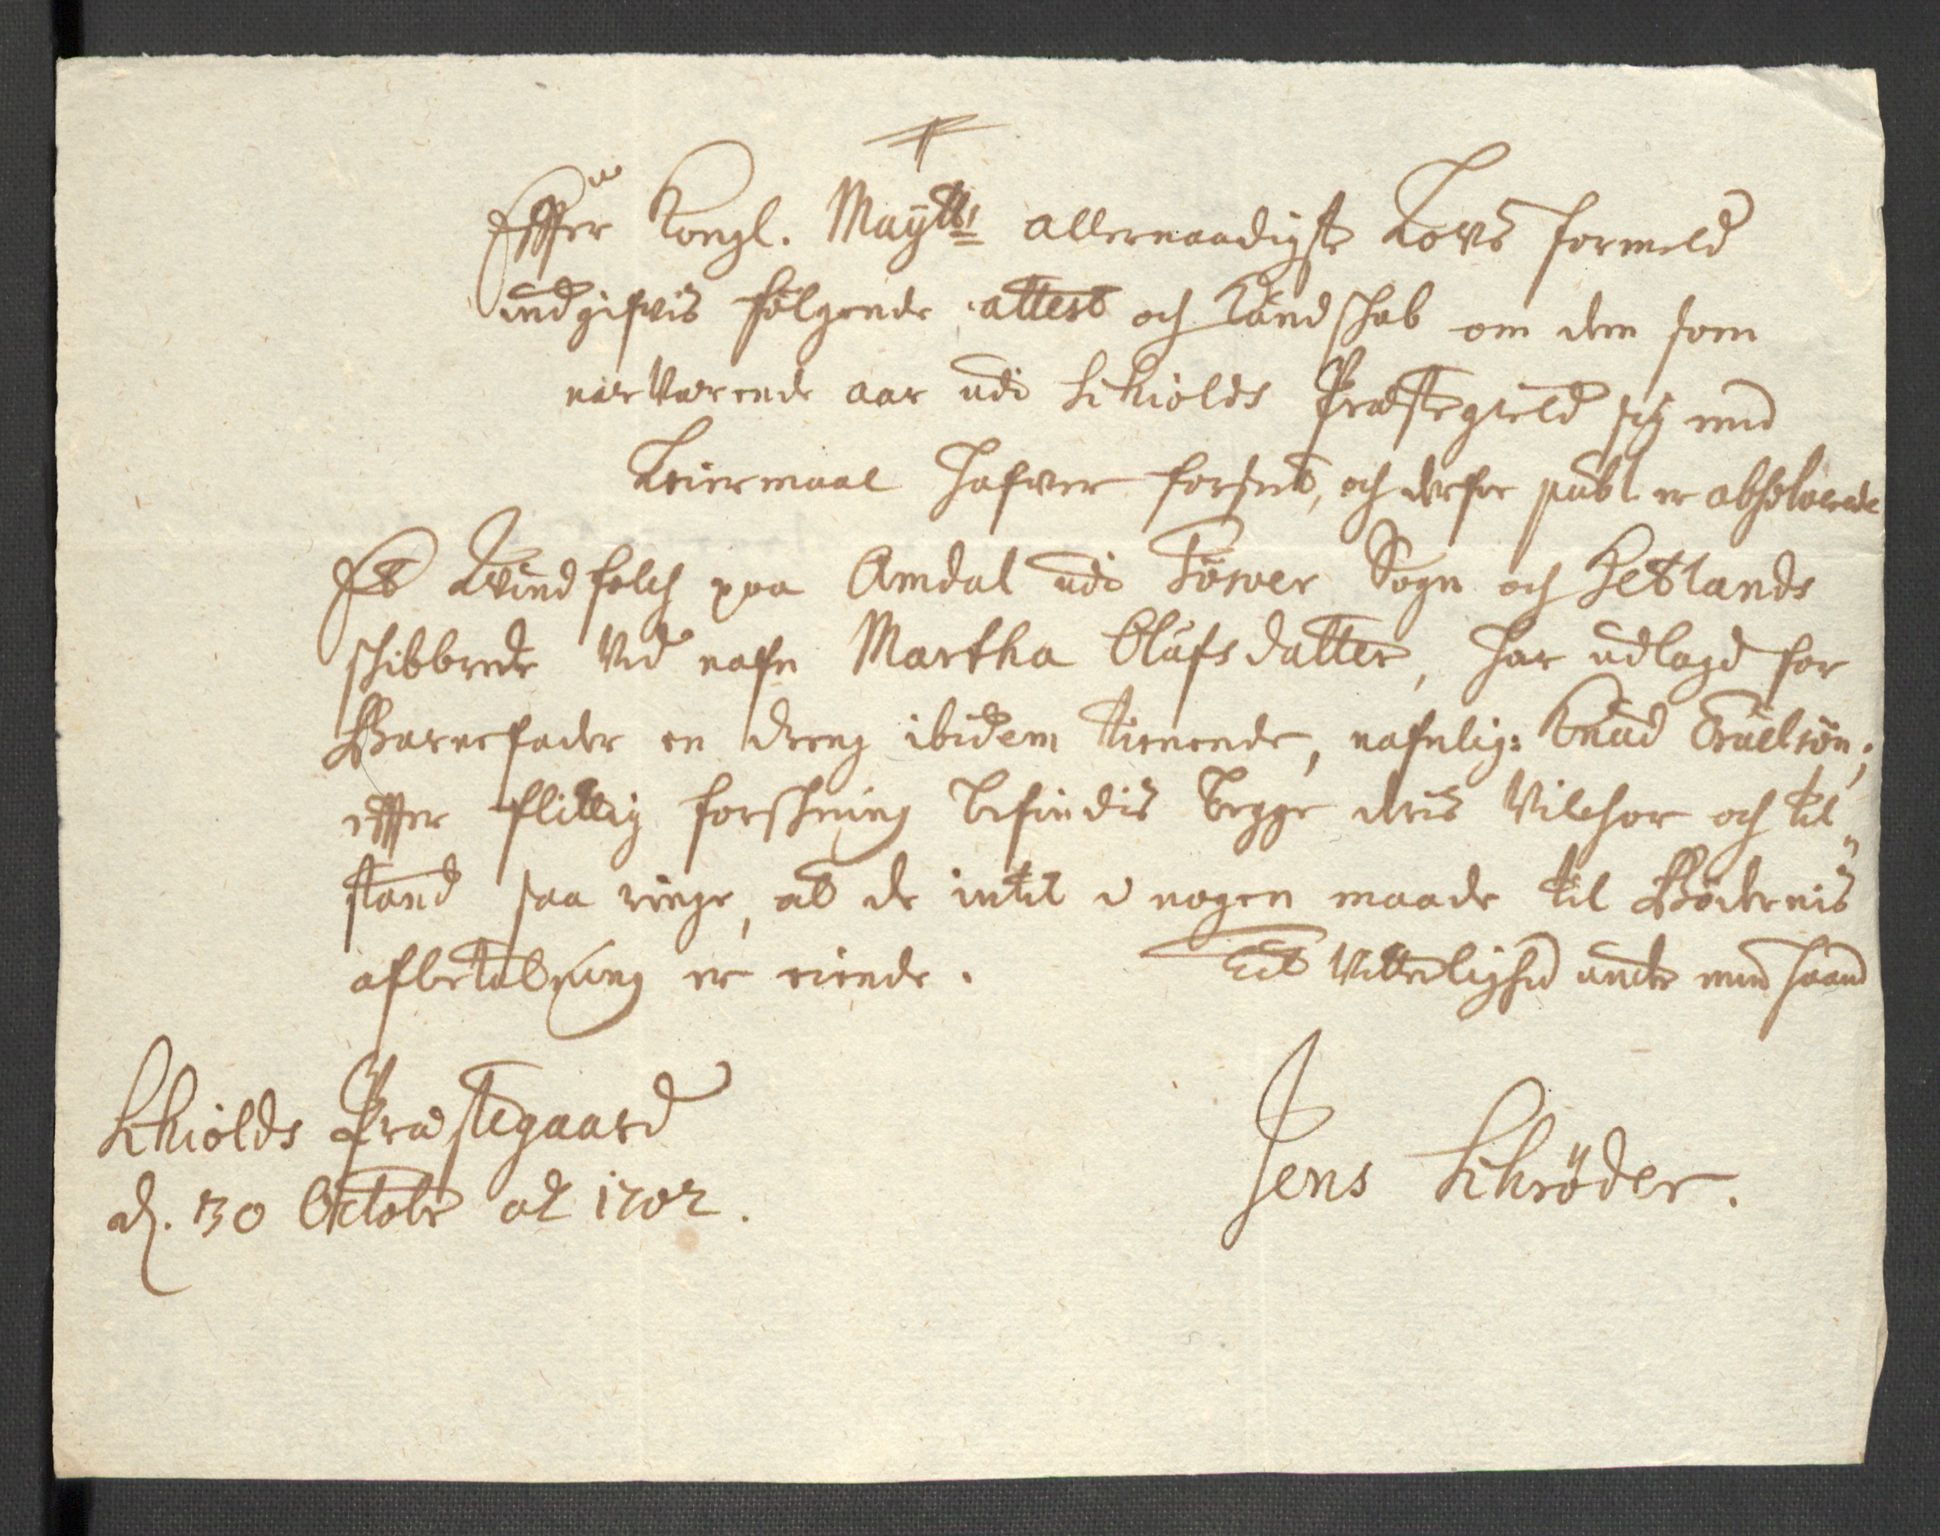 Effter Kongl. Maÿtts allernaadigste Lovs formeld
udgifvis følgende attest och Kundschab om dem som
nerværende aar udi Schiolds Præstegield sig med
Leiermaal hafver forseet, och derfor publ. er absolverede
Et Qvindfolch paa Amdal udi Fosver Sogn och Hetlands
schibbrede ved nafn Martha Olufsdatter, har udlagd for
Barnefader en dreng ibidem tienende, nafnlig: Knud Truelsøn;
effter flittig forschning befindis begge deris Vilchor och til„
stand saa ringe, at de intet i nogen maade til Bødernis
afbetahling er eiende. Till Vitterlighed under min haand
Schiolds Præstegaard
d. 30 Octobr aō 1702.
Jens Schrøder.